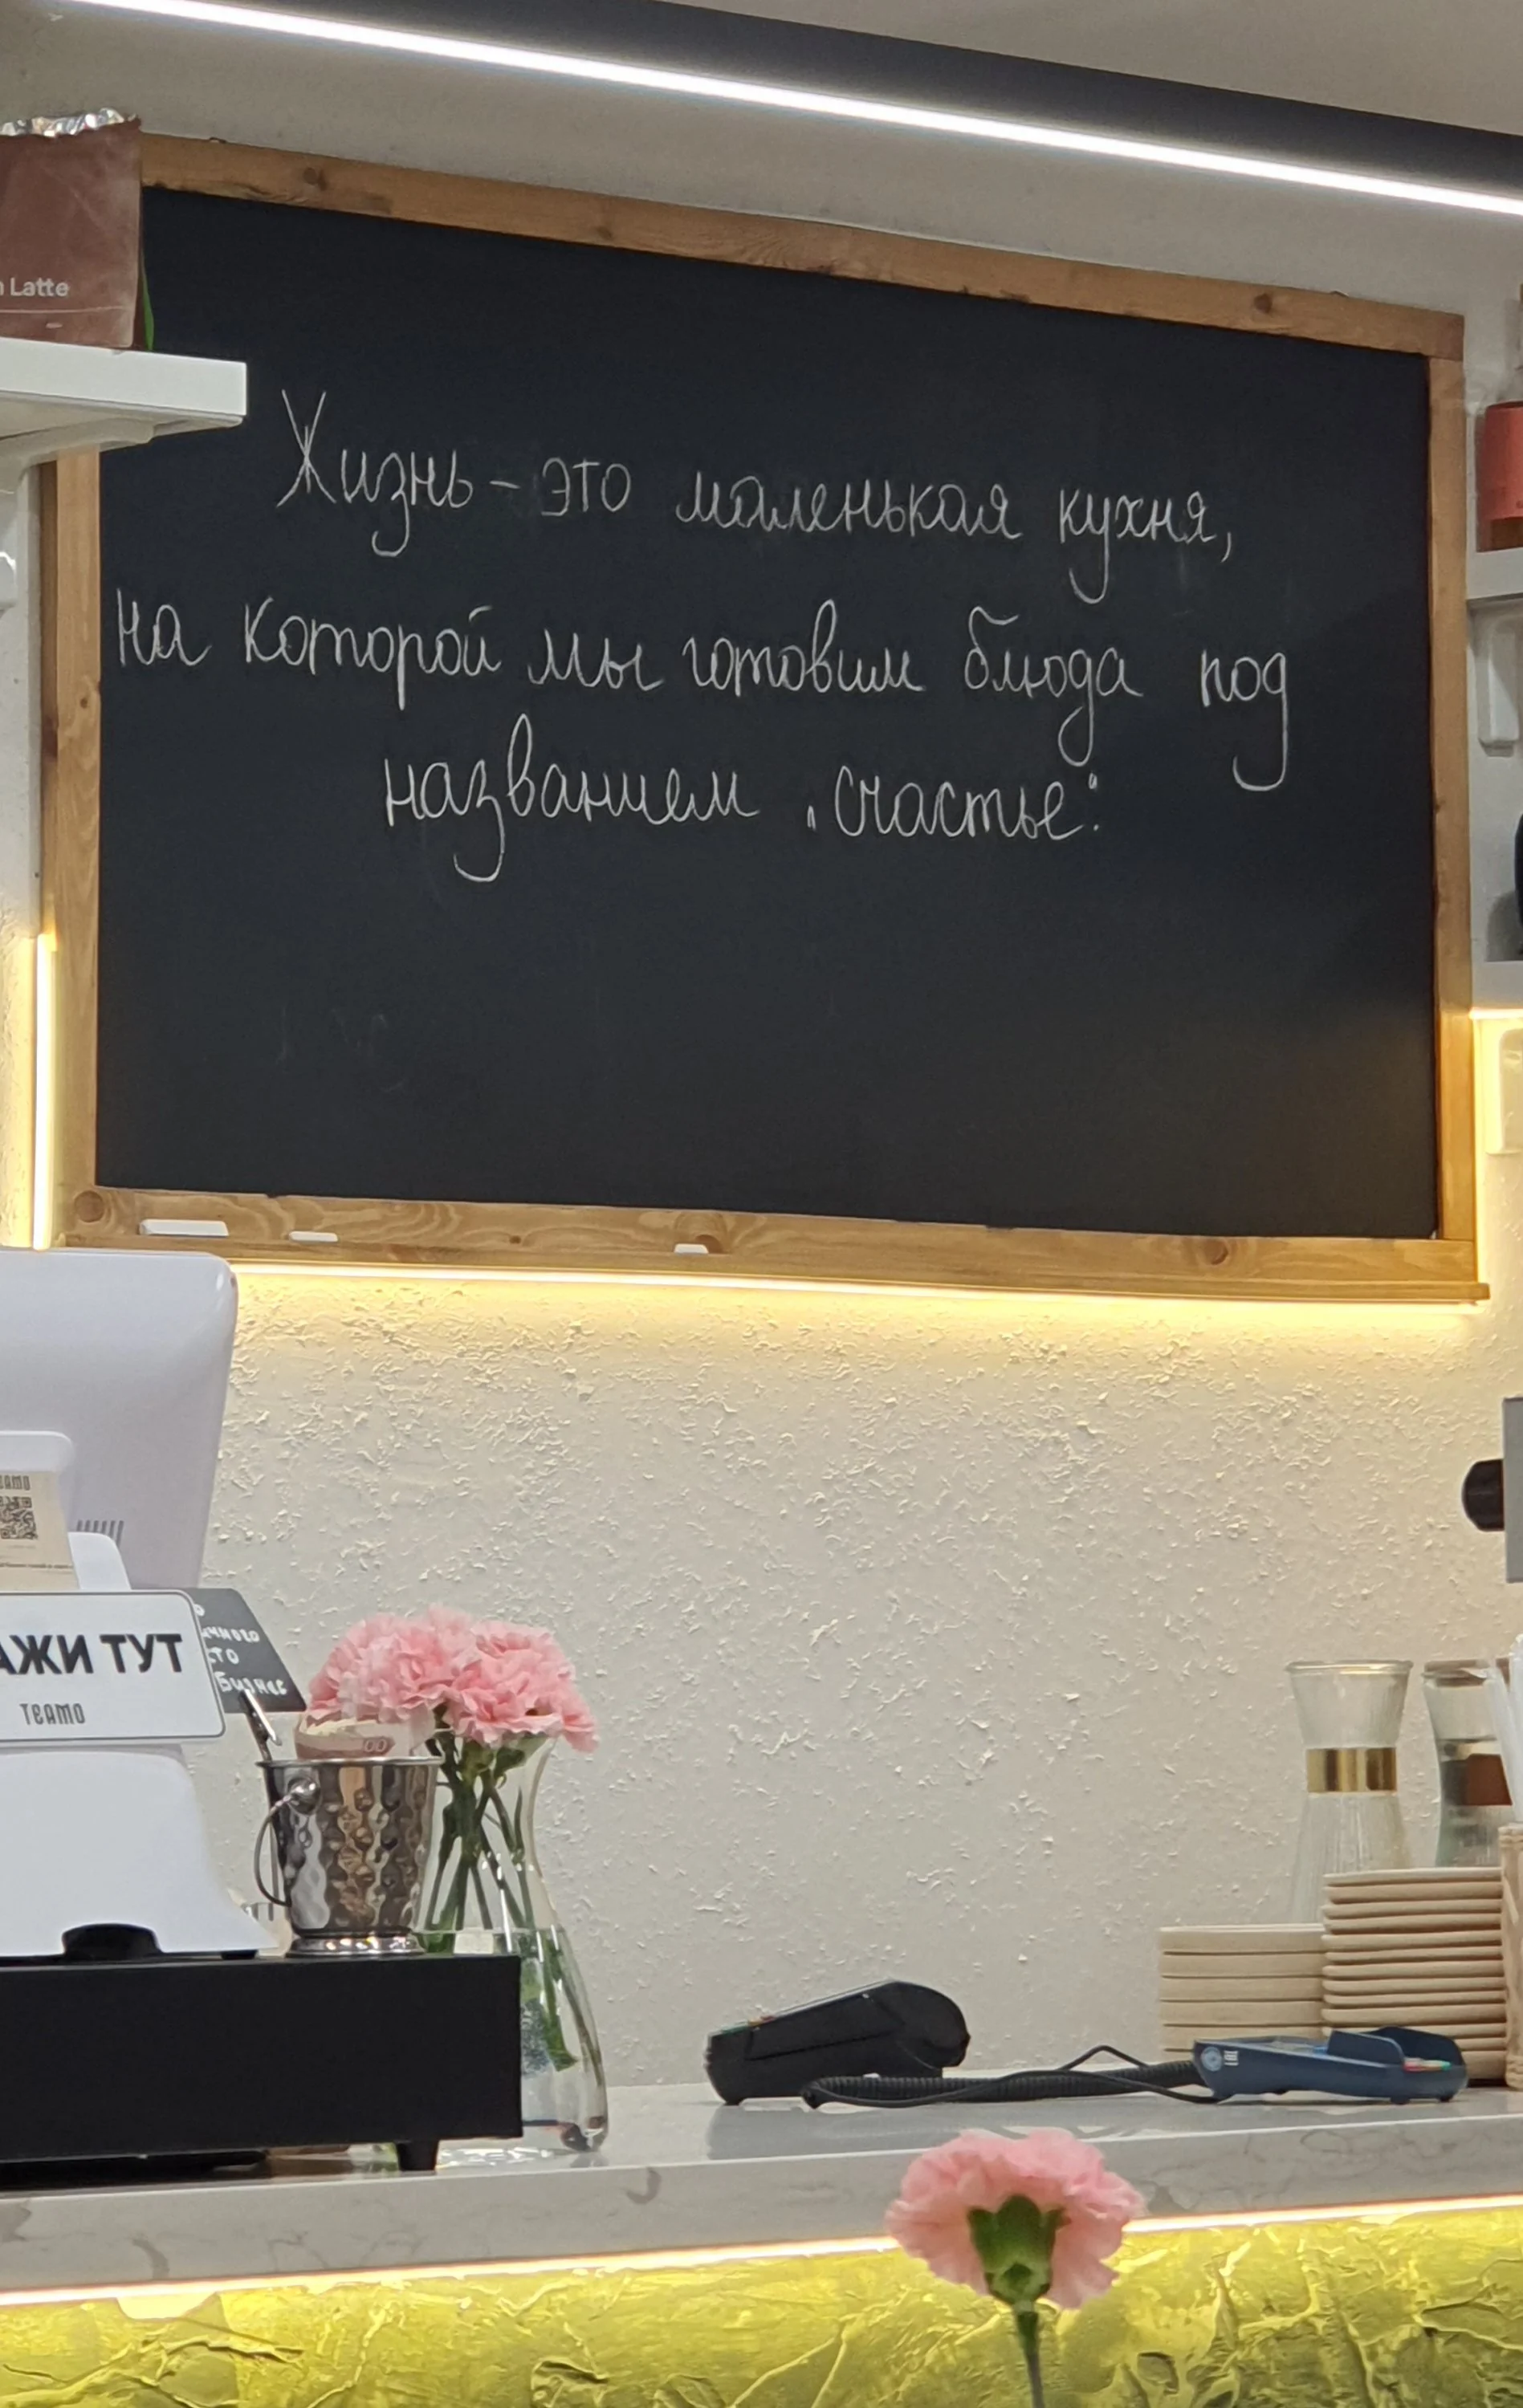 Latte
Жизнь - это маленькая кухня,
на которой мы готовим блюда под
названием „счастье“.
ТУТ
TEAMO
Бизнес
00